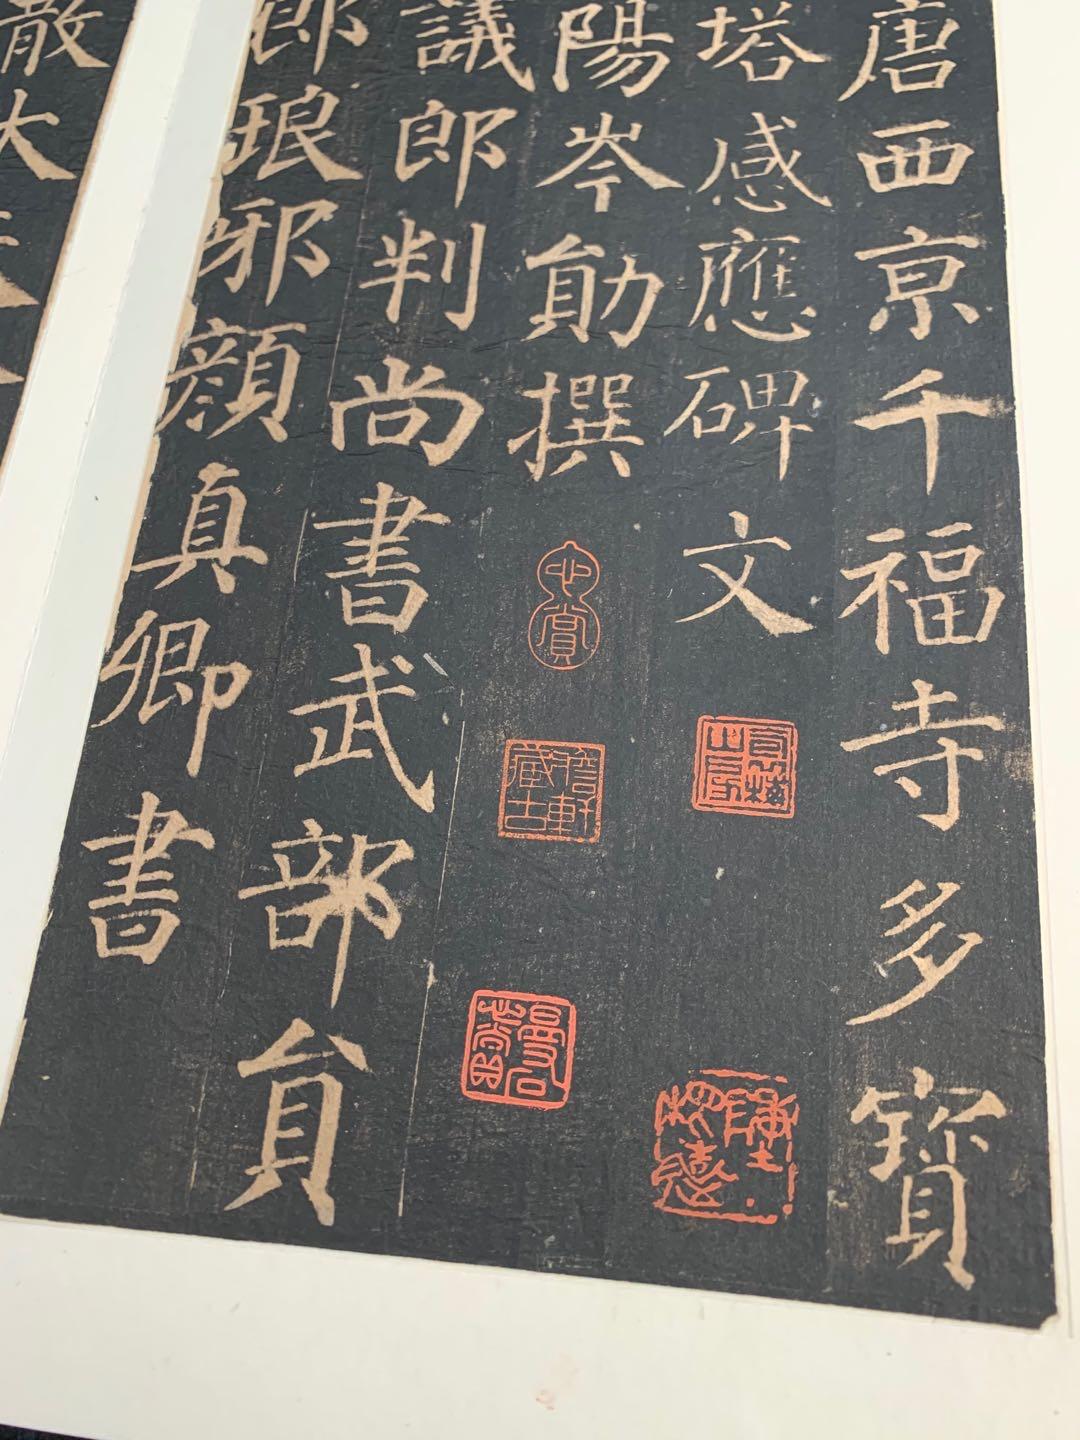 唐西京千福寺多寶
塔感應碑文
陽岑勛撰
議郎判尚書武部貟
郎琅邪顔真卿書
散大
心賞